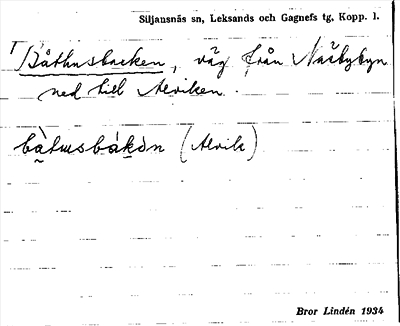 Siljansnäs sn, Leksands och Gagnefs tg, Kopp. l.
Båthusbacken, väg från Näsbybyn
ned till Alviken.
(Alvik)
Bror Lindén 1934